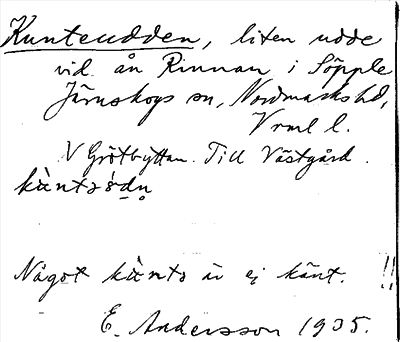 Kunteudden, liten udde
vid ån Rinnan i Söpple
Järnskogs sn, Nordmarks hd,
Vrml l.
V Grötbyttan. Till Västgård.
kànts
Något kànts är ej känt. !!
E. Andersson 1935.